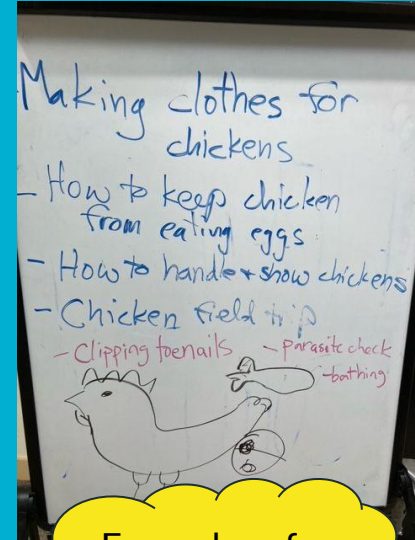 Making clothes for
chickens
- How to keep chicken
from eating eggs
- How to handle + show chickens
- Chicken field trip
- Clipping toenails - parasite check
- bathing